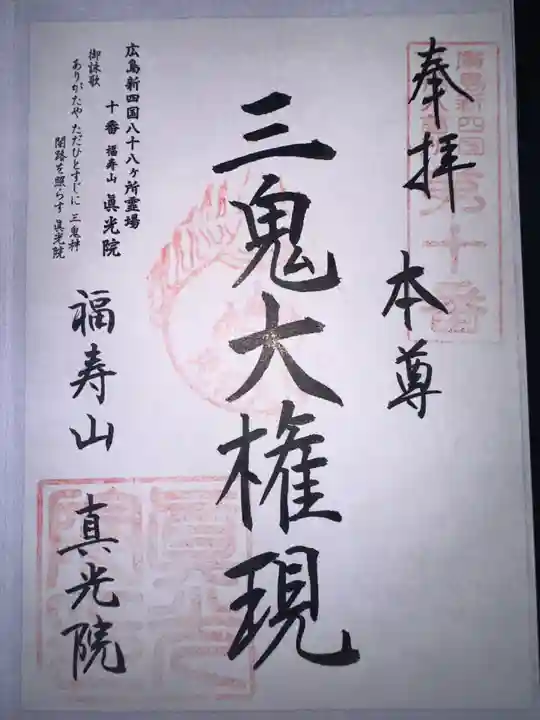 奉拝
廣島新四国
第十番
本尊
三鬼大権現
広島新四国八十八ヶ所霊場
十番 福寿山 眞光院
御詠歌
ありがたや ただひとすじに 三鬼神
闇路を照らす 眞光院
福寿山 真光院